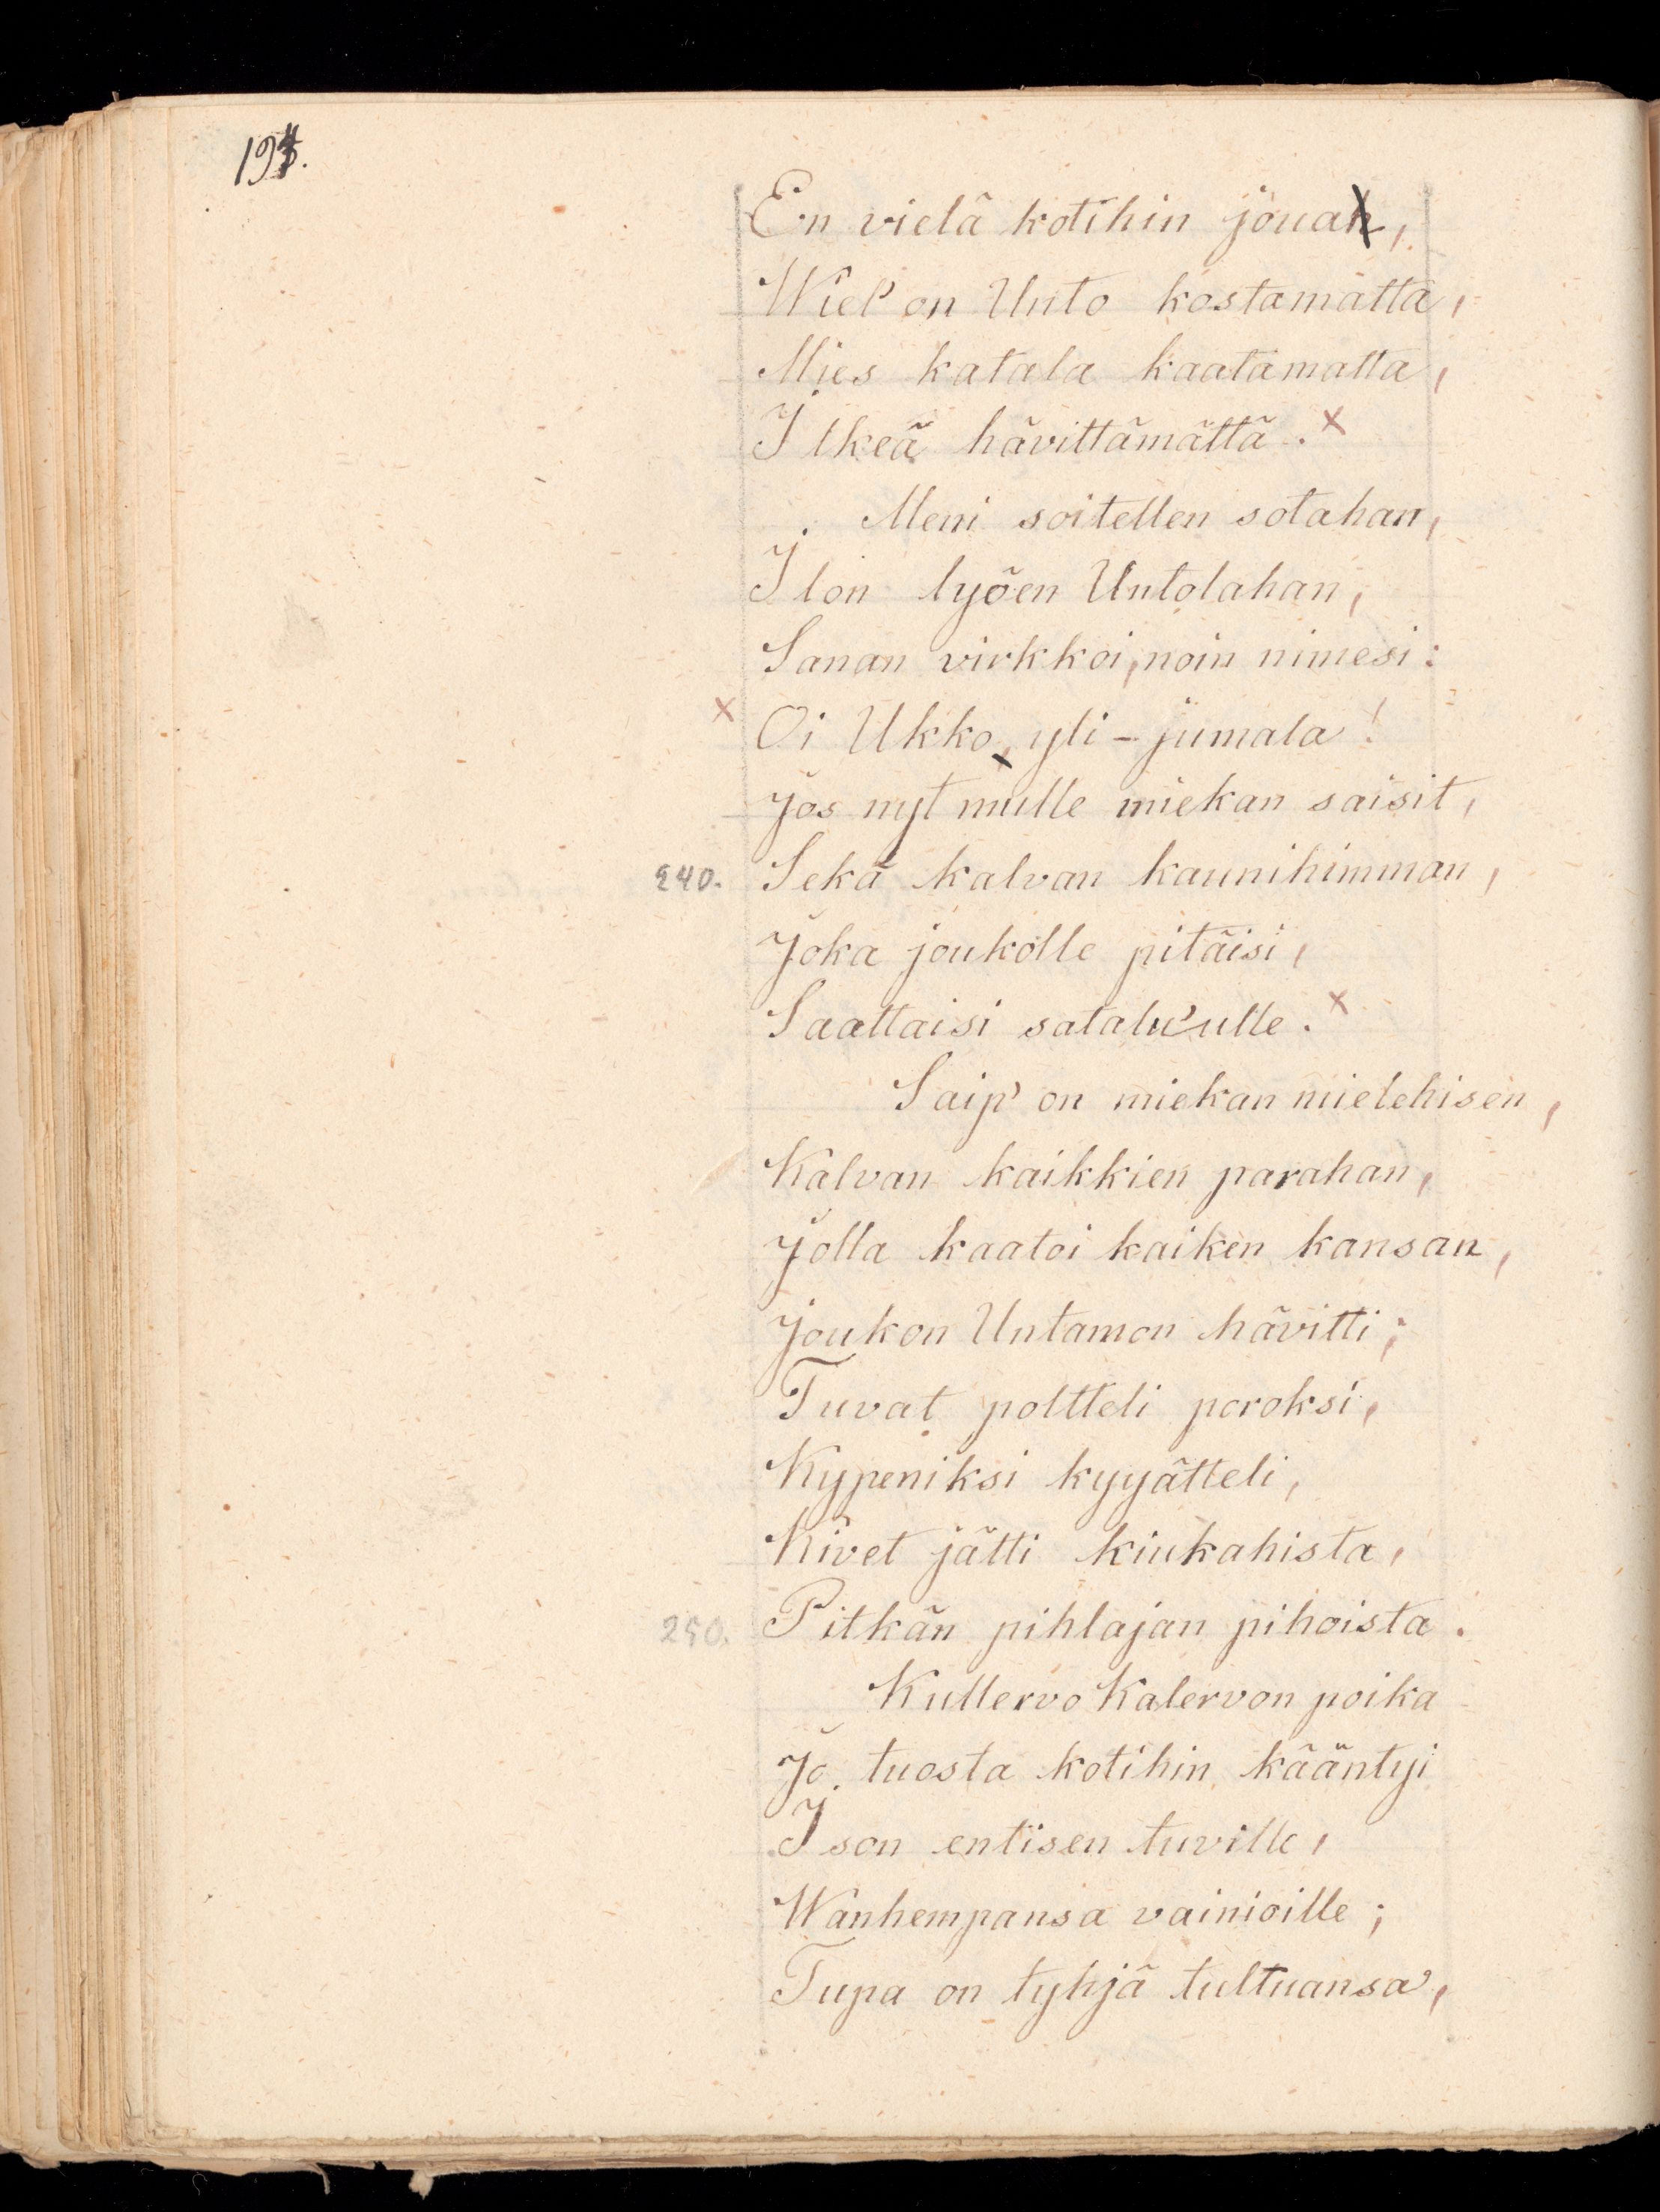 194.
En vielä kotihin joua,
Wiel' on Unto kostamatta,
Mies katala kaatamatta,
Ilkeä hävittämättä. x
Meni soitellen sotahan,
Ilon lyöen Untolahan,
Sanan virkkoi, noin nimesi:
x Oi Ukko, yli-jumala!
Jos nyt mulle miekan saisit,
240. Sekä kalvan kaunihimman,
Joka joukolle pitäisi,
Saattaisi sataluvulle. x
Saip' on miekan mielehisen,
Kalvan kaikkien parahan,
Jolla kaatoi kaiken kansan,
Joukon Untamon hävitti;
Tuvat poltteli poroksi,
Kypeniksi kyyätteli,
Kivet jätti kiukahista,
250. Pitkän pihlajan pihoista.
Kullervo Kalervon poika
Jo tuosta kotihin kääntyi
Ison entisen tuville,
Wanhempansa vainioille;
Tupa on tyhjä tultuansa,